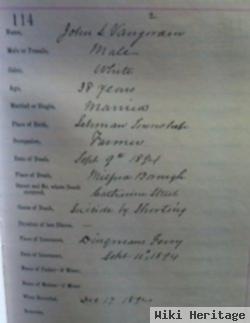 114
2.
Name, John L Vangorden
Male or Female, Male
Color, White
Age, 38 years
Married or Single, Married
Place of Birth, Township
Occupation, Farmer
Date of Death, Sept 9th 1894
Place of Death, Milford Borough
Street and No. where Death occurred, Catherine Street
Cause of Death, Suicide by Shooting
Duration of last Illness, —
Place of Interment, Dingmans Ferry
Date of Interment, Sept 1894
Name of Father—if Minor
Name of Mother—if Minor
When Recorded, Dec 17 1894
Remarks,
Wiki Heritage